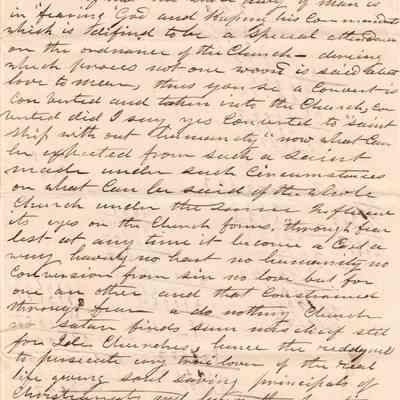 in "fearing God and Keeping his Commandments
which is defind to be a Special attendance
on the ordinance of the Church — dureing
which process not one word is said about
love to mear, thus you se a Convert is
Converted and taken into the Church, con
verted did I say yes Converted to "saint
ship with out humanity" now what Can
be expected from such a saint
made under such Circumstances
or what Can be said of the whole
Church under the same Influence
its eyes on the Church forms, through fear
lest at any time it become a Cast a
way, heavenly no heart no humanity no
Conversion from sin no love but for
one an other and that Constrained
through fear a do nothing Church
no Satan finds sum mischief still
for Idle Churches, hence the redy
to persecute any lover of the real
life giveing soul saveing principals of
Christianity and